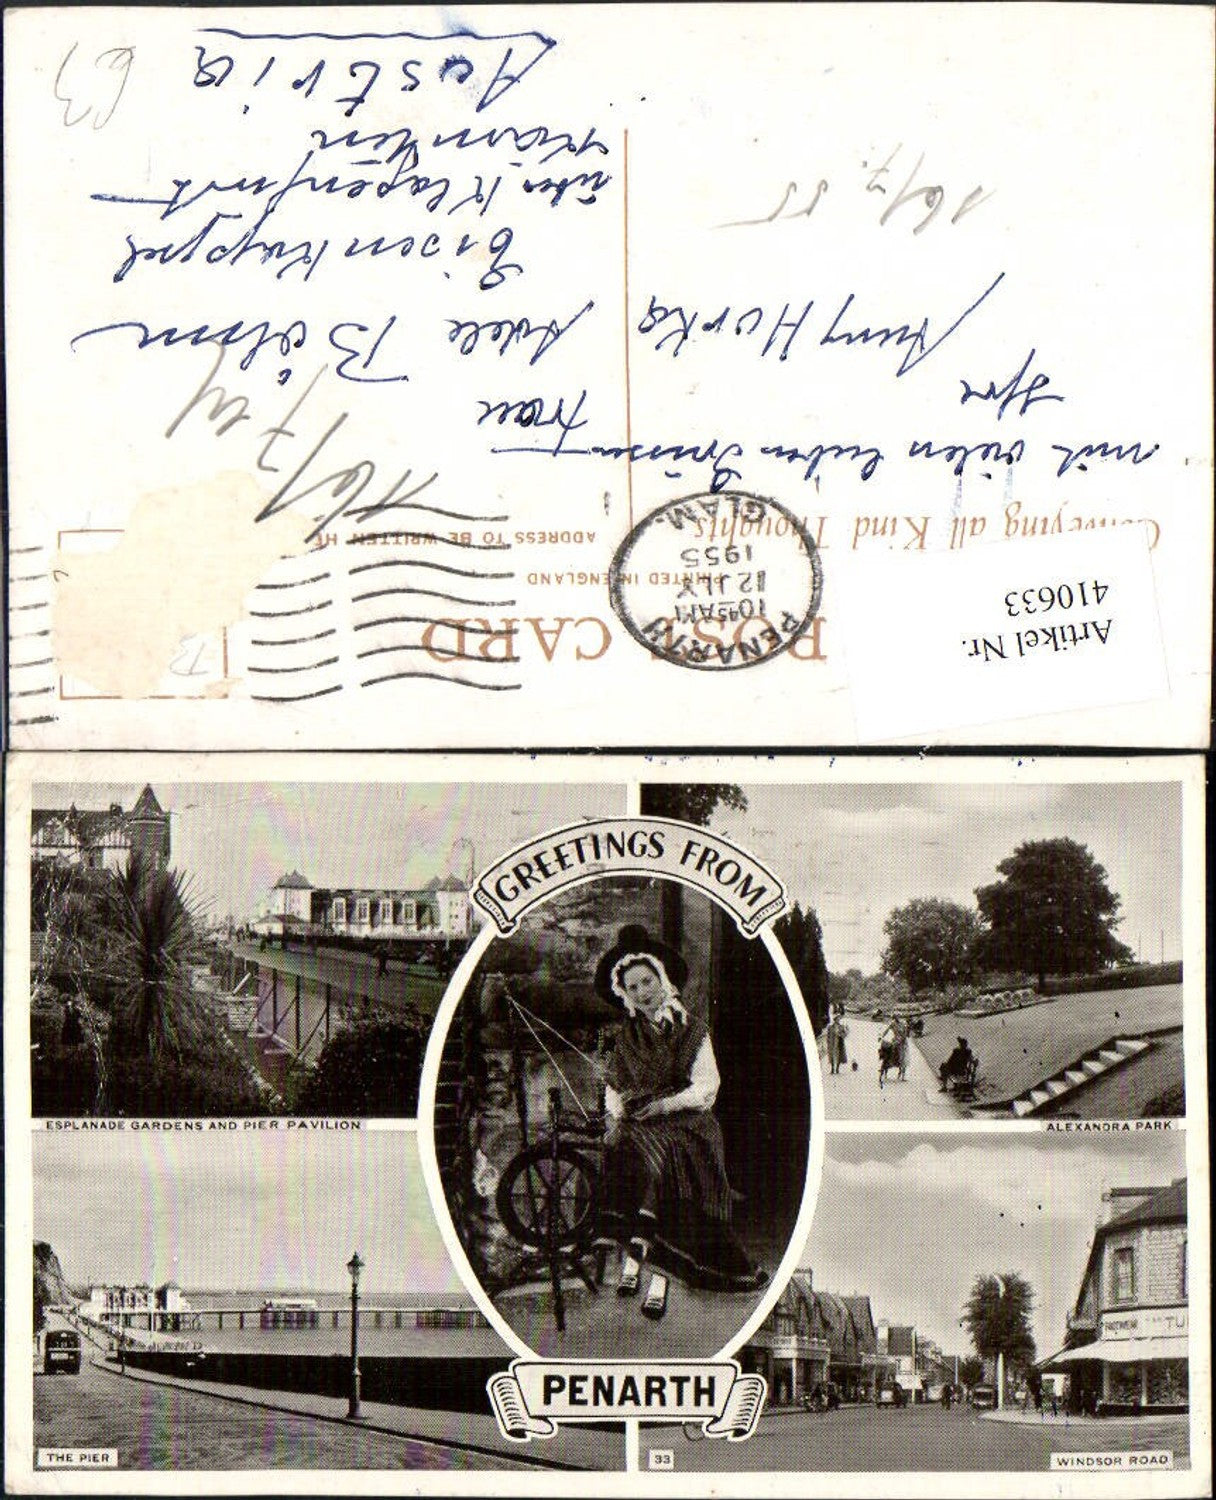 Artikel Nr.
410633
POST CARD
PRINTED IN ENGLAND
ADDRESS TO BE WRITTEN HE
PENARTH
10 45 AM
12 JLY
1955
GLAM.
Conveying all Kind Thoughts
mit vielen lieben Grüssen
Ihre
Anny Hurka
16/7. 55
16/7
Frau
Adele Böhm
Eisenkappel
über Klagenfurt
Kärnten
Austria
63
GREETINGS FROM
PENARTH
ESPLANADE GARDENS AND PIER PAVILION
ALEXANDRA PARK
FOOTWEAR "TU
THE PIER
33
WINDSOR ROAD